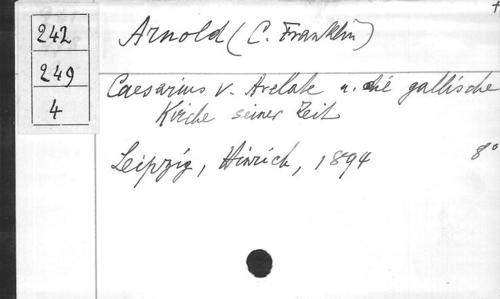 242
249
4
Arnold (C. Franklin)
Caesarius v. Arelate u. die gallische
Kirche seiner Zeit
Leipzig, Hinrich, 1894 8°